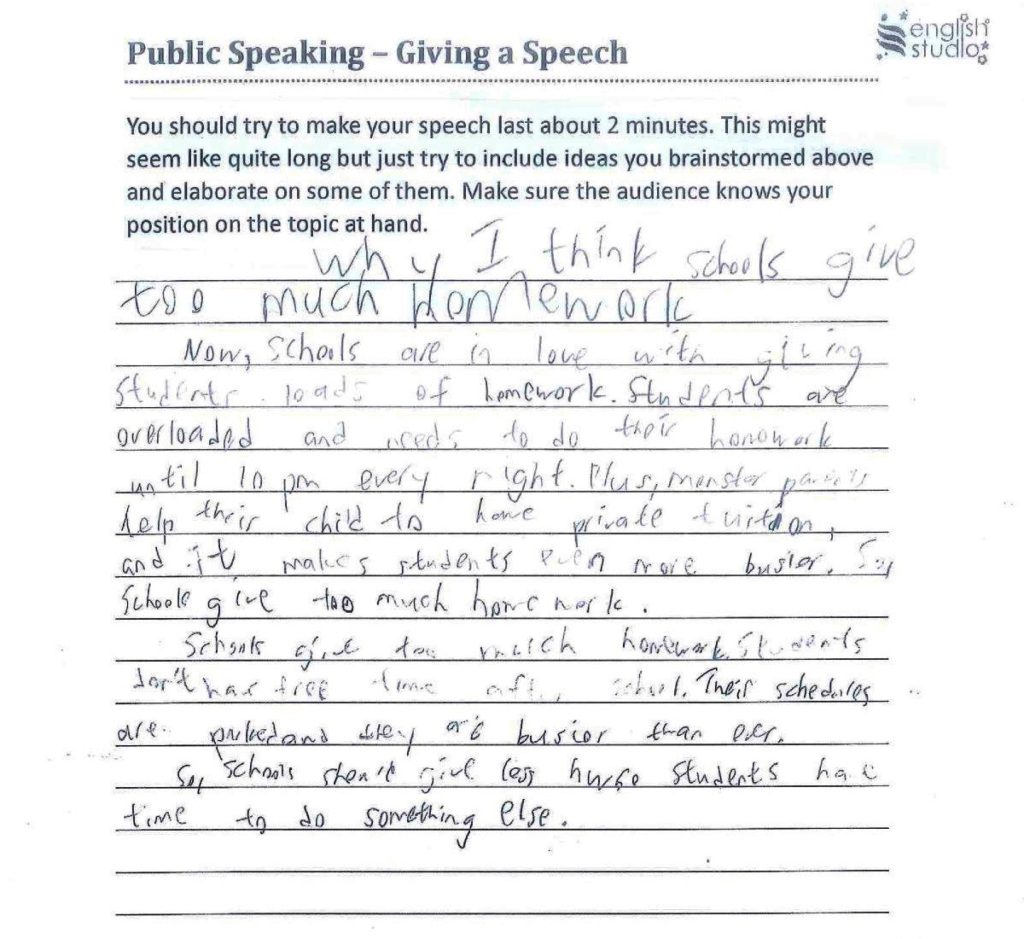 english
studio
Public Speaking – Giving a Speech
You should try to make your speech last about 2 minutes. This might
seem like quite long but just try to include ideas you brainstormed above
and elaborate on some of them. Make sure the audience knows your
position on the topic at hand.
Why I think schools give
too much Homework
Now, schools are in love with giving
students loads of homework. Students are
overloaded and needs to do their homowork
until 10 pm every night. Plus, monster parents
help their child to have private tuition,
and it makes students even more busier. So,
Schools give too much homework.
Schools give too much homework. Students
don't have free time after school. Their schedules
are and they are busier than ever.
So, schools should give less hw so students have
time to do something else.